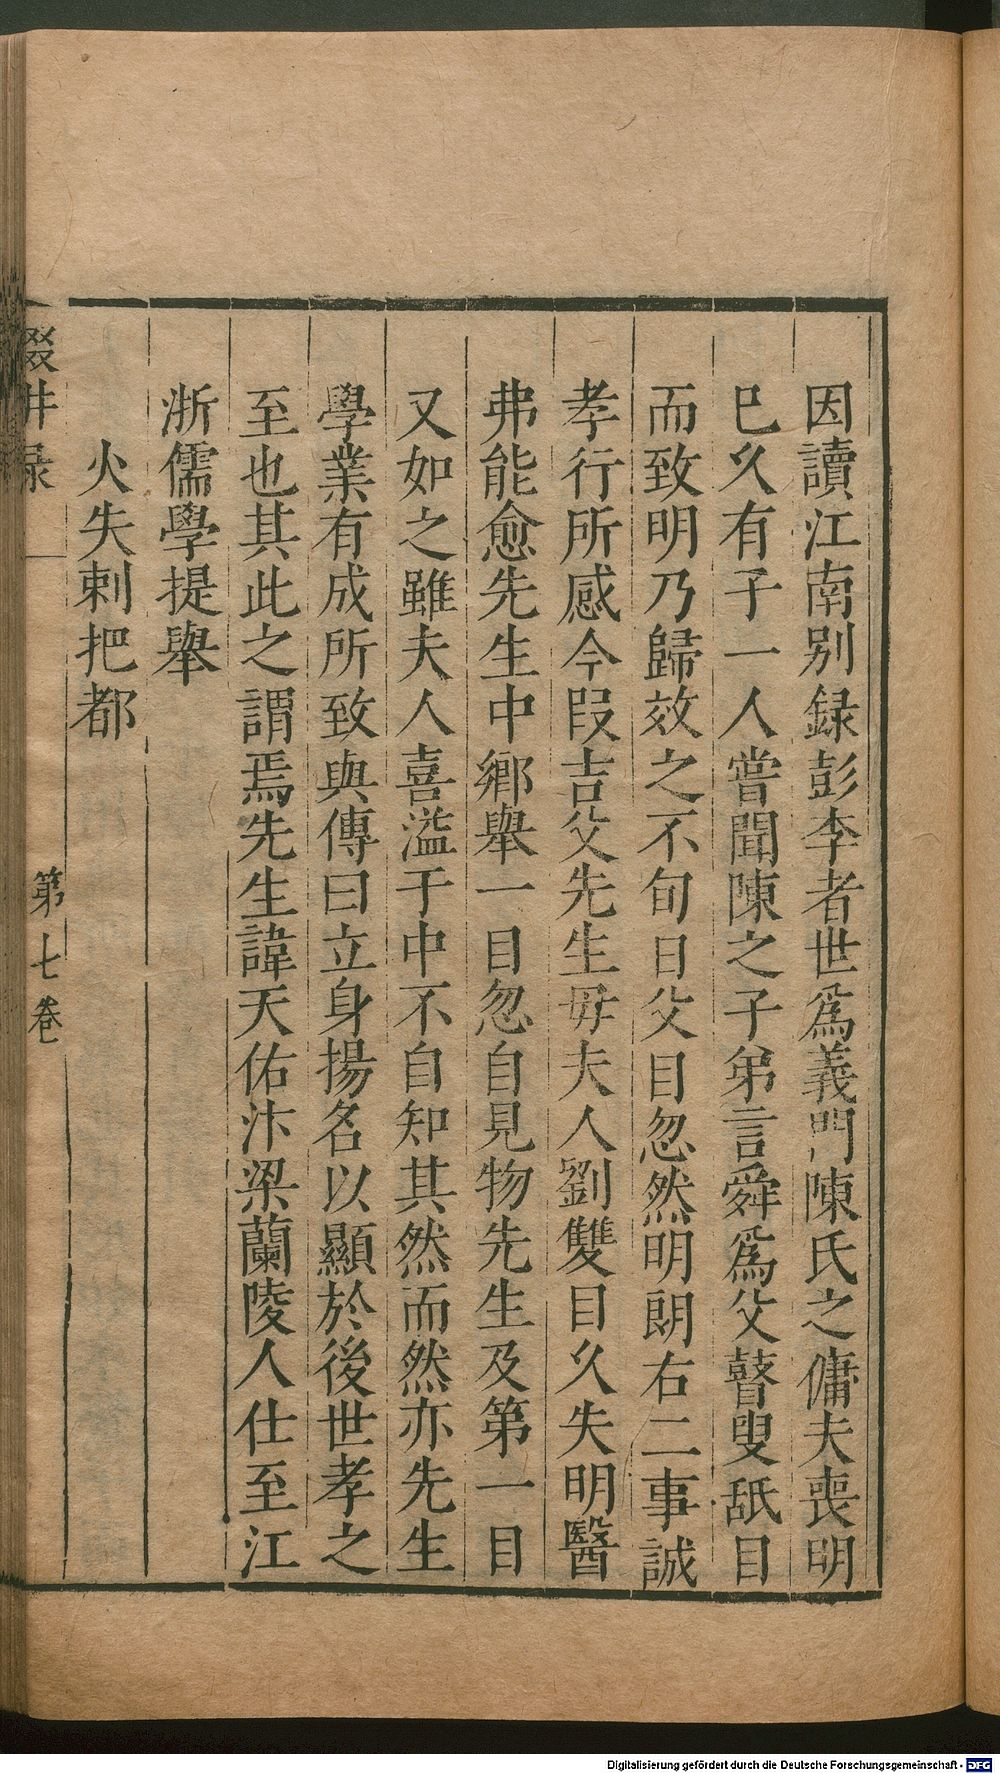 因讀江南別録彭李者世爲義門陳氏之傭夫喪明
巳久有子一人嘗聞陳之子弟言舜爲父瞽叟舐目
而致明乃歸效之不旬日父目忽然明朗右二事誠
孝行所感今叚吉父先生毋夫人劉雙目久失明醫
弗能愈先生中鄉舉一目忽自見物先生及第一目
又如之雖夫人喜溢于中不自知其然而然亦先生
學業有成所致與傳曰立身揚名以顯於後世孝之
至也其此之謂焉先生諱天佑汴梁蘭陵人仕至江
浙儒學提舉
火失剌把都
第七卷
Digitalisierung gefördert durch die Deutsche Forschungsgemeinschaft - DFG